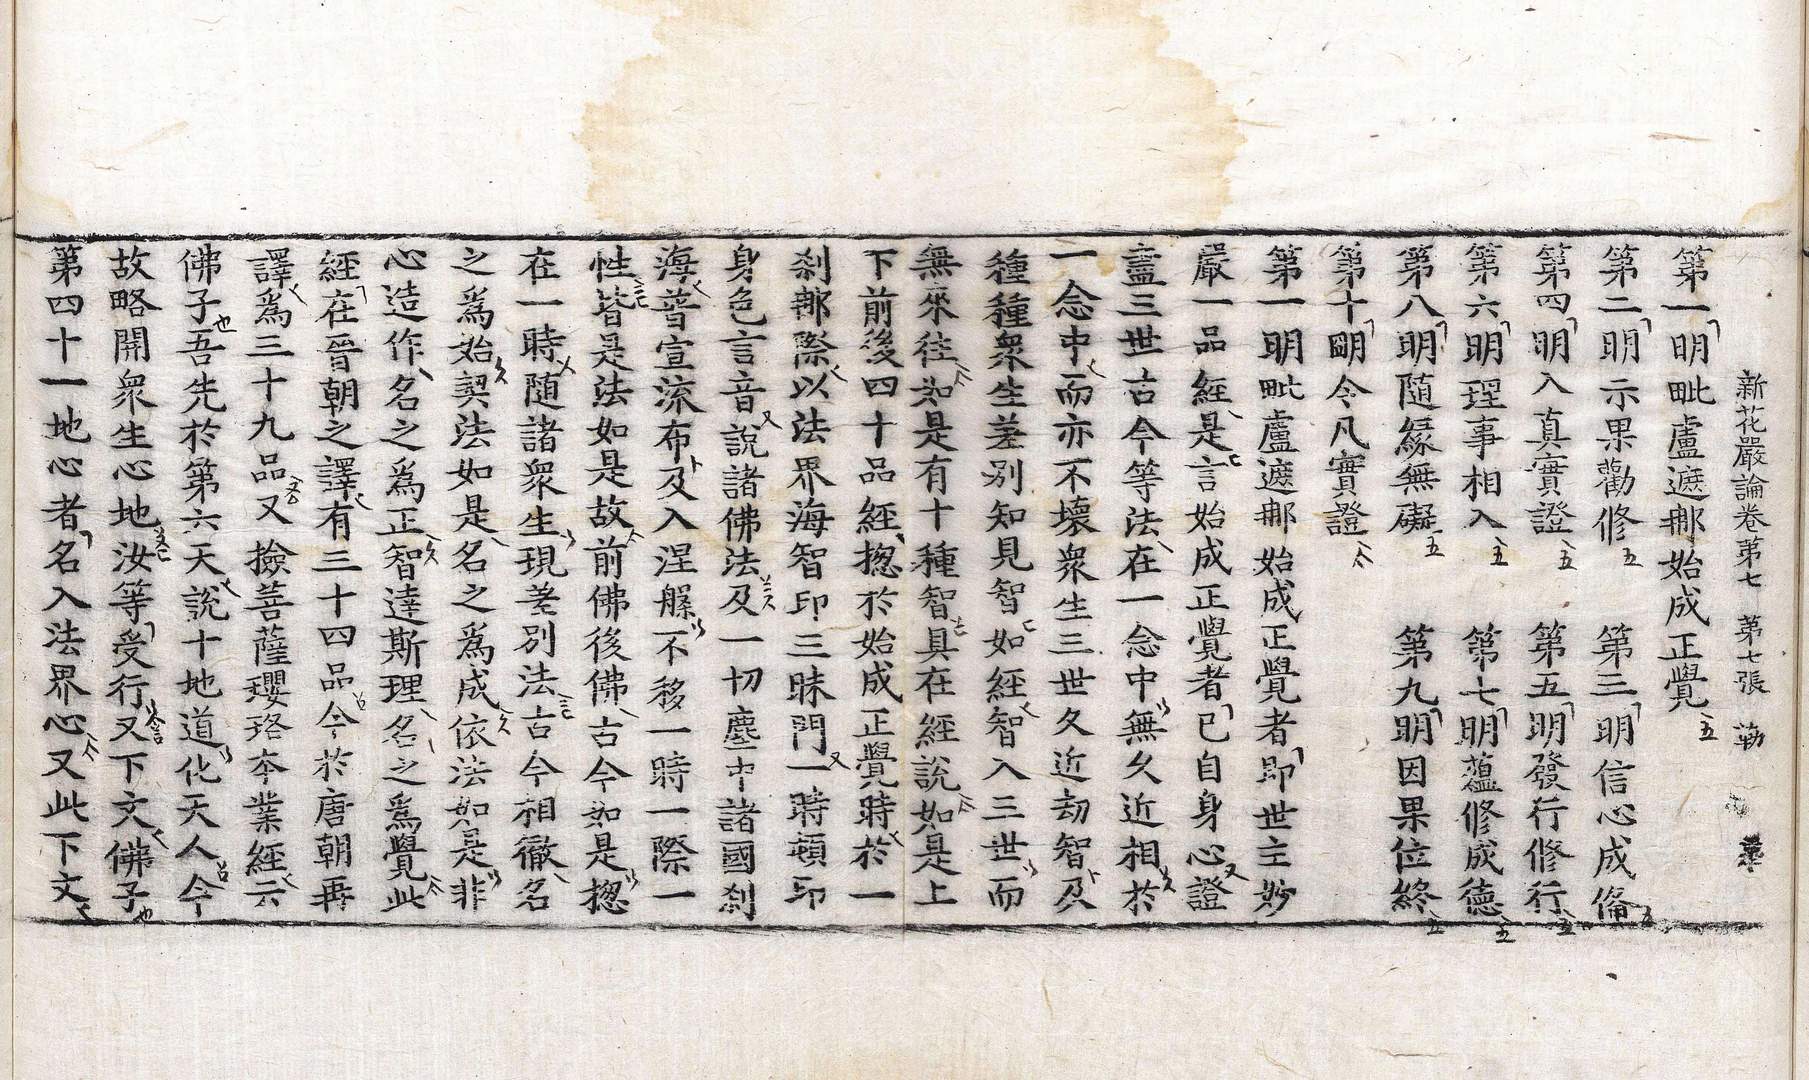 新花嚴論卷第七　第七張　勒
第一明毗盧遮那始成正覺
第二明示果勸修　第三明信心成俻
第四明入真實證　第五明發行修行
第六明理事相入　第七明蘊修成德
第八明随緣無礙　第九明因果位終
第十明令凡實證
第一明毗盧遮那始成正覺者即世主妙
嚴一品經是言始成正覺者已自身心證
盡三世古今等法在一念中無久近相於
一念中而亦不壞衆生三世久近劫智及
種種衆生差别知見智如經智入三世而
無來往如是有十種智具在經說如是上
下前後四十品經揔於始成正覺時於一
刹那際以法界海智印三昧門一時頓印
身色言音說諸佛法及一切塵中諸國刹
海普宣流布及入涅槃不移一時一際一
性皆是法如是故前佛後佛古今如是揔
在一時随諸衆生現差别法古今相徹名
之爲始契法如是名之爲成依法如是非
心造作名之爲正智達斯理名之爲覺此
經在晉朝之譯有三十四品今於唐朝再
譯爲三十九品又撿菩薩瓔珞夲業經云
佛子吾先於第六天說十地道化天人今
故略開衆生心地汝等受行又下文佛子
第四十一地心者名入法界心又此下文